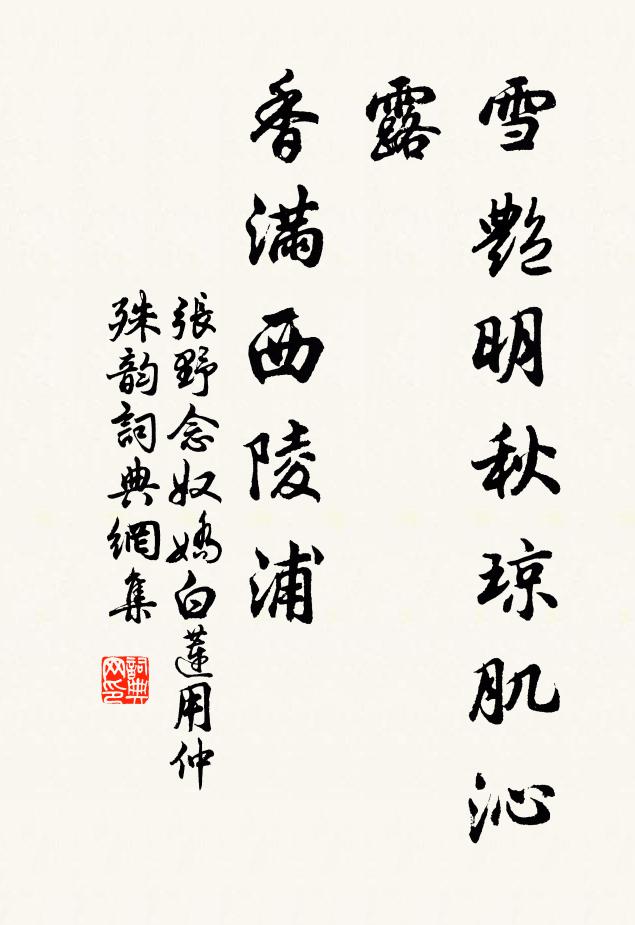 雪艷明秋琼肌沁
露
香滿西陵浦
張野念奴嬌白蓮用仲
殊韵詞典網集
詞典网印